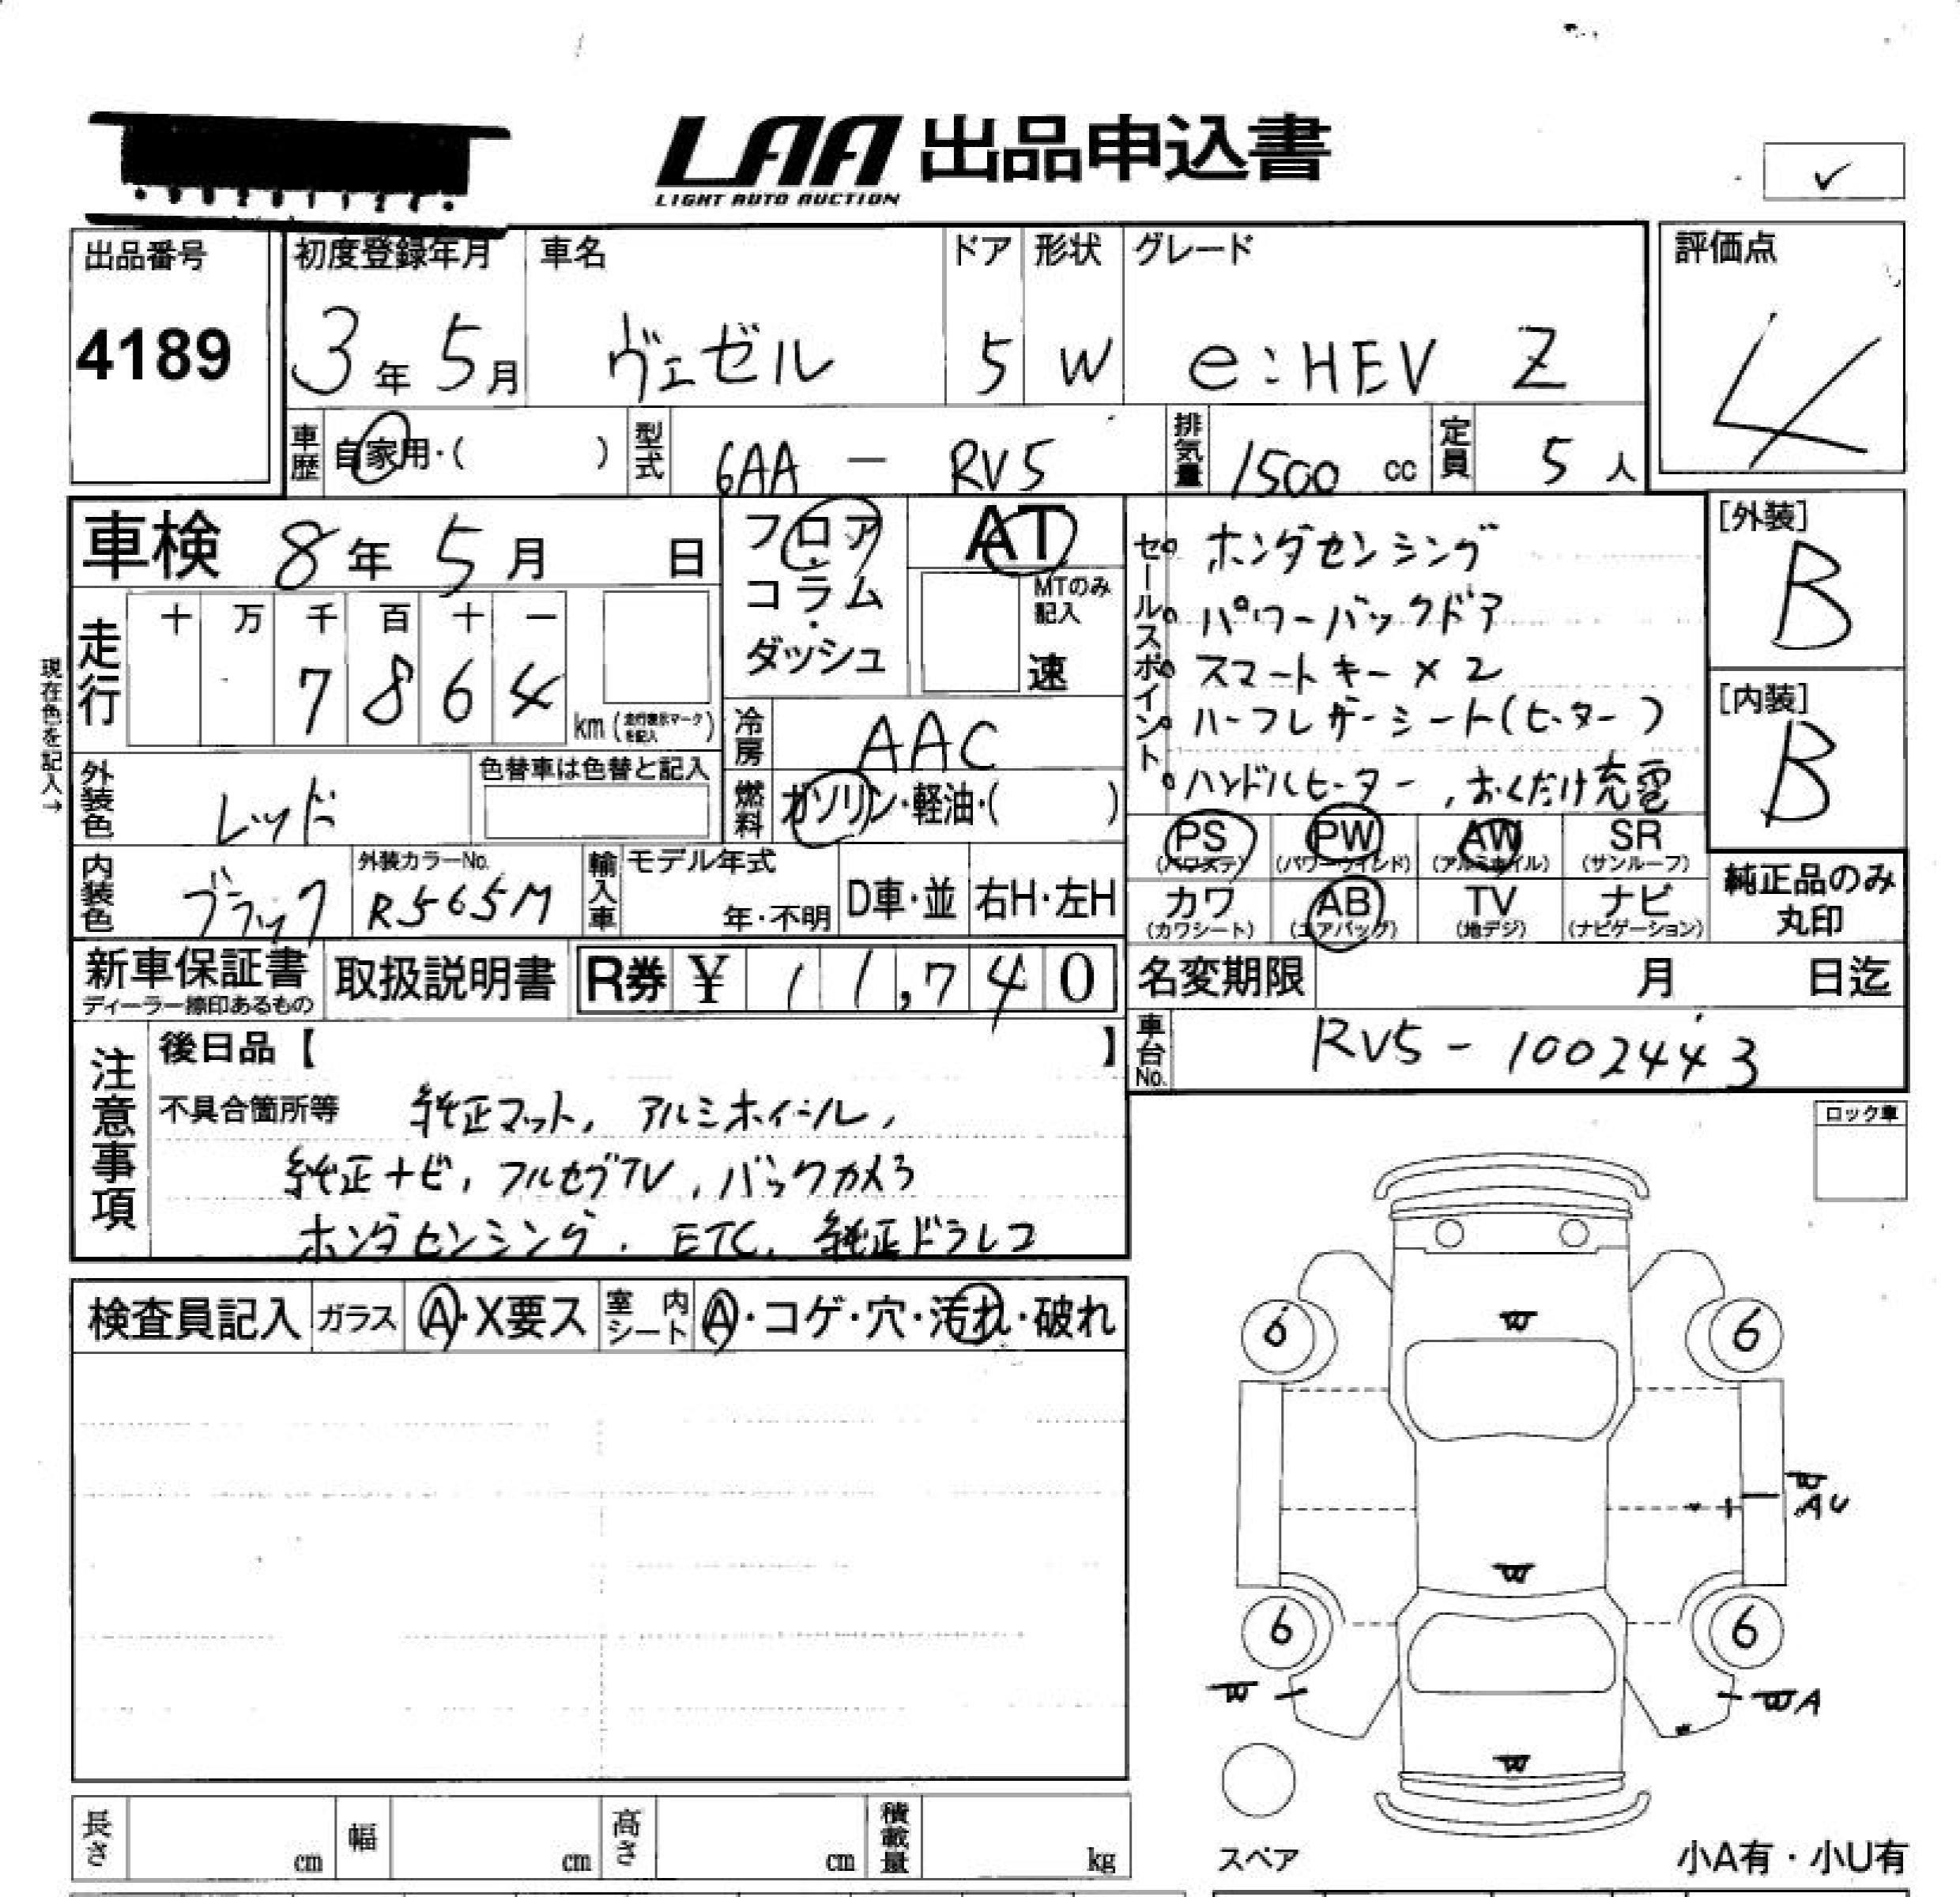 LAA 出品申込書
LIGHT AUTO AUCTION
✓
出品番号 初度登録年月 車名 ドア 形状 グレード 評価点
4189 3年5月 ヴェゼル 5 W e:HEV Z 4
車歴 自家用・( ) 型式 6AA - RV5 排気量 1500 cc 定員 5人
車検 8年5月 日
フロア・コラム・ダッシュ
AT
MTのみ記入
速
セールスポイント
ホンダセンシング
パワーバックドア
スマートキー×2
ハーフレザーシート(ヒーター)
ハンドルヒーター, おくだけ充電
[外装]
B
[内装]
B
現在色を記入→
走行 十 万 千 百 十 一
7864 km (走行表示マークを記入)
冷房 AAC
外装色 レッド 色替車は色替と記入
燃料 ガソリン・軽油・( )
PS (パワステ) PW (パワーウインド) AW (アルミホイル) SR (サンルーフ)
カワ (カワシート) AB (エアバッグ) TV (地デジ) ナビ (ナビゲーション)
純正品のみ丸印
内装色 ブラック 外装カラーNo. R565M 輸入車 モデル年式 年・不明 D車・並 右H・左H
新車保証書 ディーラー捺印あるもの 取扱説明書 R券 ¥ 11,740 名変期限 月 日迄
車台No. RV5-1002443
注意事項
後日品【 】
不具合箇所等 純正マット, アルミホイール,
純正ナビ, フルセグTV, バックカメラ
ホンダセンシング, ETC, 純正ドラレコ
ロック車
検査員記入 ガラス A・X要ス 室内シート A・コゲ・穴・汚れ・破れ
6 W 6
W
AU
W
6 6
W WA
W
スペア
小A有・小U有
長さ cm 幅 cm 高さ cm 積載量 kg